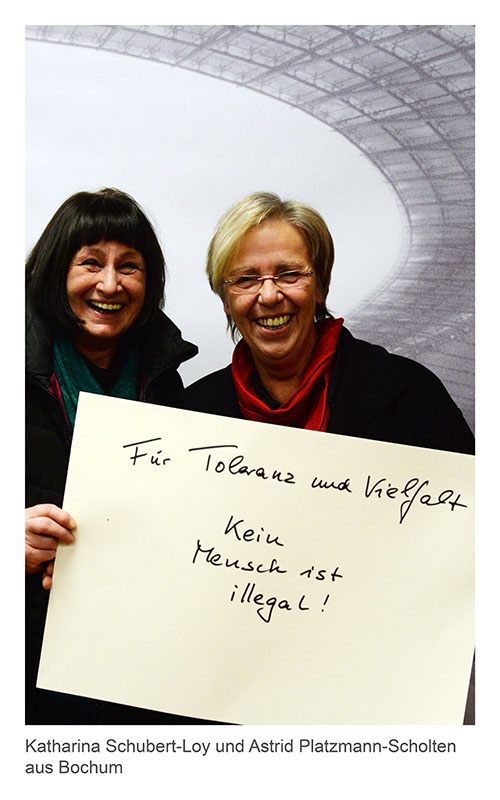 Für Toleranz und Vielfalt
Kein
Mensch ist
illegal!
Katharina Schubert-Loy und Astrid Platzmann-Scholten
aus Bochum